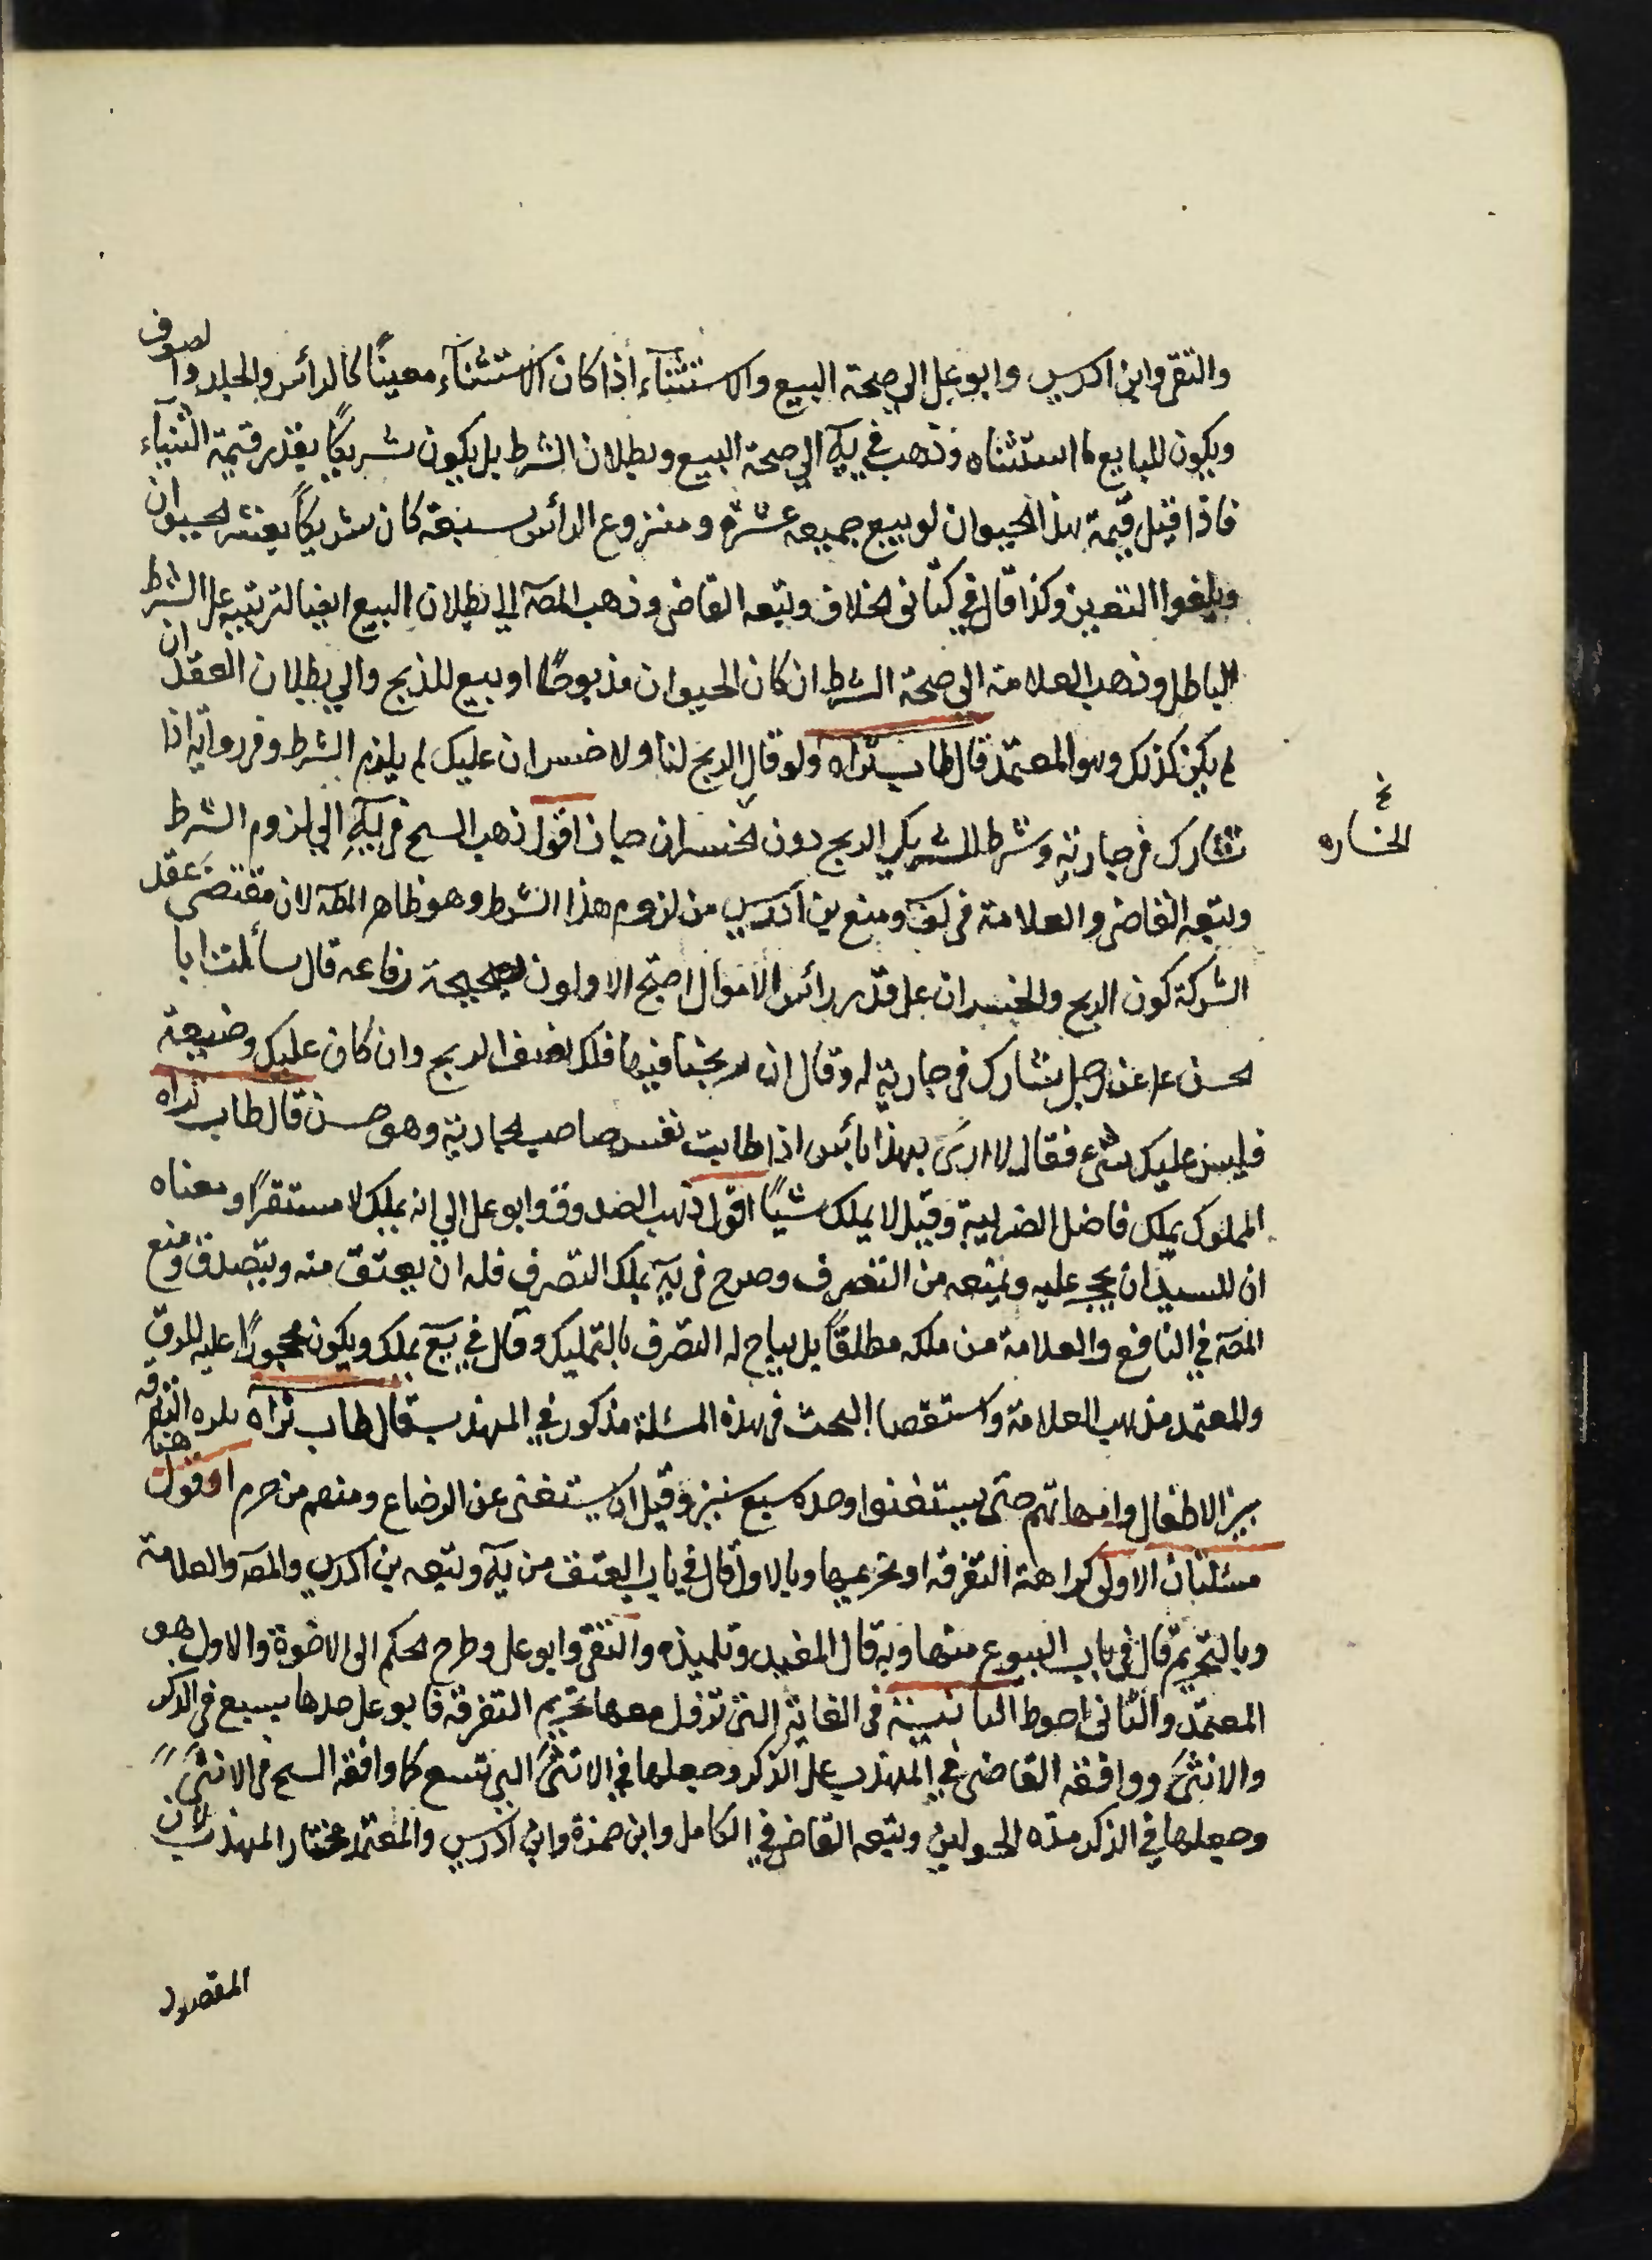 والتقي وابن ادريس وابو علي الي صحة البيع والاستثناء اذا كان الاستثناء معينًا كالرأس والجلد والصوف
ويكون للبايع ما استثناه وذهب في يه الي صحة البيع وبطلان الشرط بل يكون شريكًا بقدر قيمة الثنياء
فاذا قيل قيمة هذا الحيوان لو بيع جميعه عشرة ومنزوع الرأس سبعة كان شريكًا بعشر الحيوان
ويلغوا التعيين وكذا قال في كتاب الخلاف وتبعه القاضي وذهب المصه الي بطلان البيع ايضا لترتبه علي الشرط
الباطل وذهب العلامة الي صحة الشرط ان كان الحيوان مذبوحًا او بيع للذبح والي بطلان العقد ان
لم يكن كذلك وهو المعتمد قال طاب ثراه ولو قال الربح لنا ولا خسران عليك لم يلزم الشرط وفي رواية اذا
تشارك في جارية وشرط للشريك الربح دون الخسران جاز اقول ذهب الشيخ في يه الي لزوم الشرط
نخ
الخساره
وتبعه القاضي والعلامة في لف ومنع بن ادريس من لزوم هذا الشرط وهو ظاهر المصه لان مقتضي عقد
الشركة كون الربح والخسران علي قدر رأس الاموال احتج الاولون بصحيحة رفاعه قال سألت ابا
الحسن ع عن رجل شارك في جارية له وقال ان ربحنا فيها فلك نصف الربح وان كان عليك وضيعة
فليس عليك شيء فقال لا اري بهذا بأس اذا طابت نفس صاحب الجارية وهو حسن قال طاب ثراه
المملوك يملك فاضل الضريبة وقيل لا يملك شيًا اقول ذهب الصدوق وابو علي الي انه يملك لا مستقرًا ومعناه
ان للسيد ان يحجر عليه ويمنعه من التصرف وصرح في يه بملك التصرف فله ان يعتق منه ويتصدق ومنع
المصه في النافع والعلامة من ملكه مطلقًا بل يباح له التصرف بالتمليك وقال في يع يملك ويكون محجورًا عليه للرق
والمعتمد مذهب العلامة واستقصاء البحث في هذه المسئلة مذكور في المهذب قال طاب ثراه يكره التفرقه
بين الاطفال وامهاتهم حتى يستغنوا وحده سبع سنين وقيل ان يستغنى عن الرضاع ومنهم من حرم اقول هنا
مسئلتان الاولي كراهة التفرقه او تحريمها وبالاول قال في باب العتق من يه وتبعه بن ادريس والمصه والعلامة
وبالتحريم قال في باب البيوع منها وبه قال المفيد وتلميذه والتقي وابو علي وطرح الحكم الى الاخوة والاول هو
المعتمد والثاني احوط الثانية في الغاية التي تزول معها تحريم التفرقة فابو علي حدها بسبع في الذكر
والانثى ووافقه القاضي في المهذب علي الذكر وجعلها في الانثى الي تسع كما وافقه الشيخ في الانثى
وجعلها في الذكر مدة الحولين وتبعه القاضي في الكامل وابن حمزة وابن ادريس والمعتمد مختار المهذب لان
المقصود